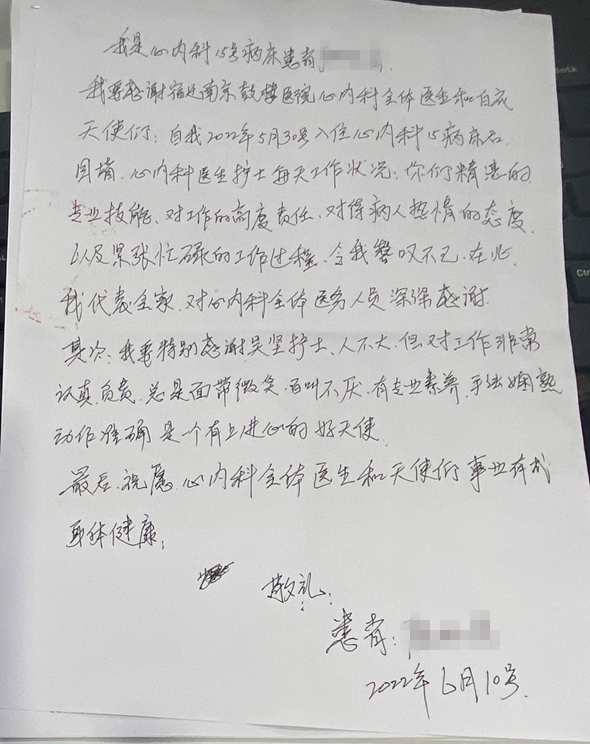 我是心内科15号病床患者
我要感谢宿迁南京鼓楼医院心内科全体医生和白衣
天使们：自我2022年5月30号入住心内科15病床后
目睹、心内科医生护士每天工作状况：你们精湛的
专业技能、对工作的高度责任、对待病人热情的态度、
以及紧张忙碌的工作过程、令我赞叹不已、在此
我代表全家、对心内科全体医务人员深深感谢
其次：我要特别感谢吴坚护士、人不大、但对工作非常
认真、负责、总是面带微笑、百叫不厌、有专业素养、手法娴熟
动作准确 是一个有上进心的好天使、
最后、祝愿、心内科全体医生和天使们 事业有成
身体健康；
敬礼：
患者：
2022年6月10号